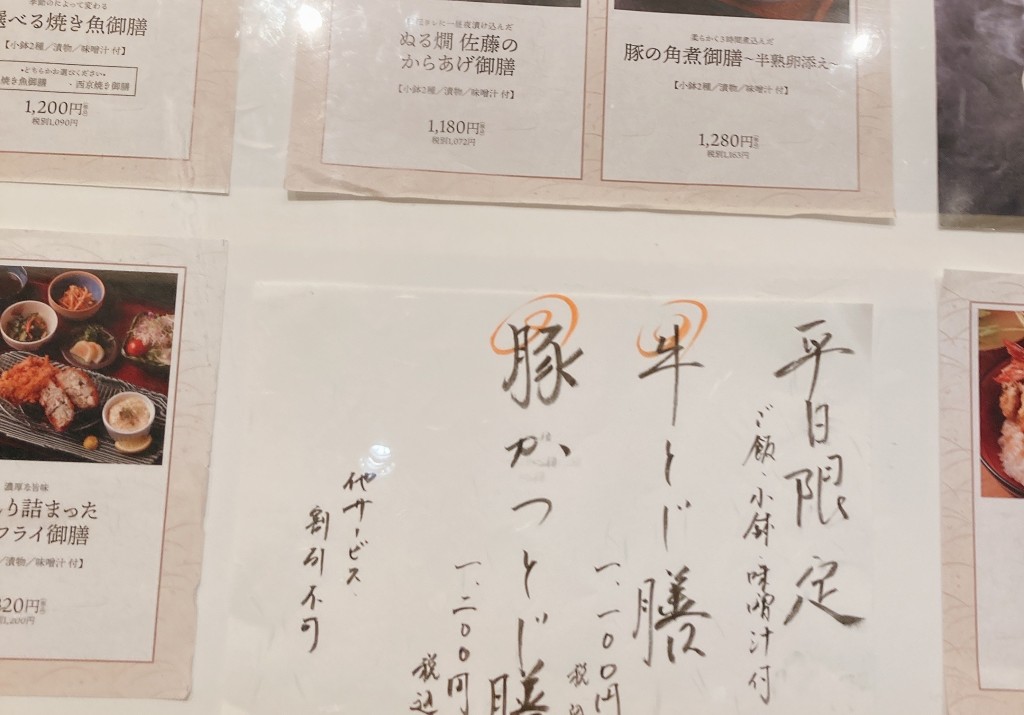 季節のたよって変わる
選べる焼き魚御膳
【小鉢2種/漬物/味噌汁 付】
•どちらかお選びください•
焼き魚御膳 ・西京焼き御膳
1,200円
税別1,090円
ぬる燗 佐藤の
からあげ御膳
【小鉢2種/漬物/味噌汁 付】
1,180円
税別1,072円
柔らかく3時間煮込んだ
豚の角煮御膳~半熟卵添え~
【小鉢2種/漬物/味噌汁 付】
1,280円
税別1,163円
濃厚な旨味
り詰まった
フライ御膳
/漬物/味噌汁 付】
320円
1,200円
平日限定
ご飯・小鉢・味噌汁付
牛とじ膳
一、一〇〇円
税込
豚かつとじ膳
一、二〇〇円
税込
他サービス
割引不可